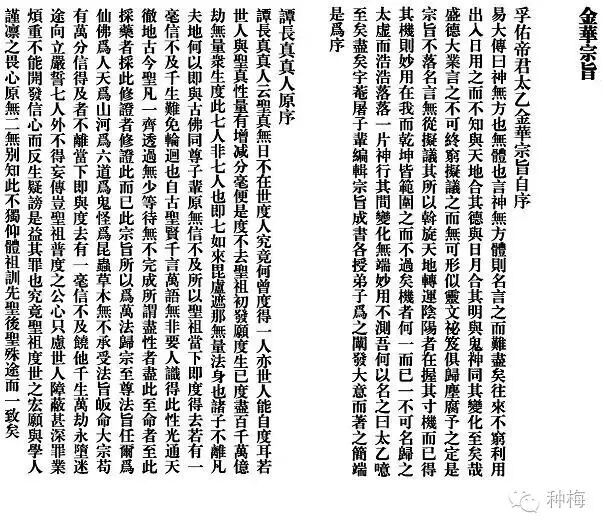 金華宗旨
孚佑帝君太乙金華宗旨自序
易大傳曰神無方也無體也言神無方體則名言之而難盡矣往來不窮利用
出入日用之而不知與天地合其德與日月合其明與鬼神同其變化至矣哉
盛德大業言之不可終窮擬議之而無可形似靈文祕笈俱歸塵腐予之定是
宗旨不落名言無從擬議其所以斡旋天地轉運陰陽者在握其寸機而已得
其機則妙用在我而乾坤皆範圍之而不過矣機者何一而已一不可名歸之
太虛而浩浩落落一片神行其間變化無端妙用不測吾何以名之曰太乙噫
至矣盡矣字菴屠子輩編輯宗旨成書各授弟子爲之闡發大意而著之簡端
是爲序
譚長真真人原序
譚長真真人云聖真無日不在世度人究竟何曾度得一人亦世人能自度耳若
世人與聖真性量有增減分毫便是度不去聖祖初發願度生已度盡百千萬億
劫無量衆生度此七人非七人也即七如來毘盧遮那無量法身也諸子不離凡
夫地何以即與古佛同尊子輩原無信不及所以聖祖當下即度得去若有一
毫信不及千生難免輪迴也自古聖賢千言萬語無非要人識得此性光通天
徹地古今聖凡一齊透過無少等待無不完成所謂盡性者盡此至命者至此
採藥者採此修證者修證此而已此宗旨所以爲萬法歸宗至尊法旨任爾爲
仙佛爲人天爲山河爲六道爲鬼怪爲昆蟲草木無不承受法旨皈命大宗苟
有萬分信得及者不離當下即與度去有一毫信不及饒他千生萬劫永墮迷
途向立嚴誓七人外不得妄傳豈聖祖普度之公心只慮世人障蔽甚深罪業
煩重不能開發信心而反生疑謗是益其罪也究竟聖祖度世之宏願與學人
謹凛之畏心原無二無別知此不獨仰體祖訓先聖後聖殊途而一致矣
种梅